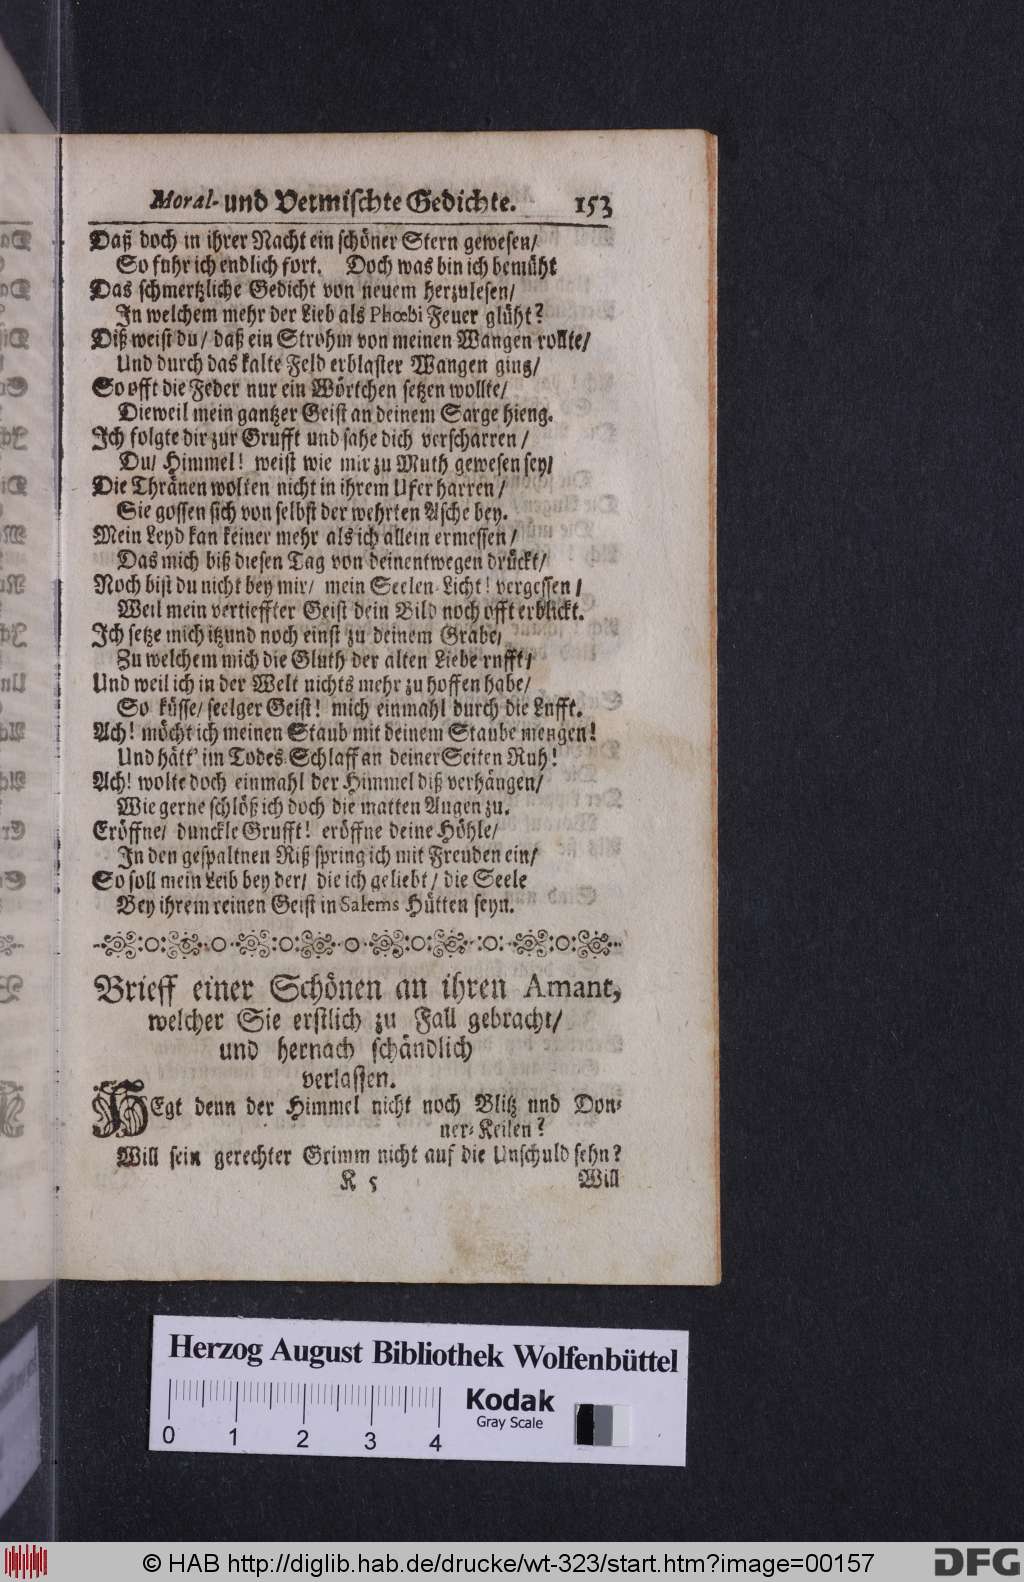 Moral- und Vermischte Gedichte. 153
Daß doch in ihrer Nacht ein schöner Stern gewesen/
So fuhr ich endlich fort. Doch was bin ich bemüht
Das schmertzliche Gedicht von neuem herzulesen/
In welchem mehr der Lieb als Phœbi Feuer glüht?
Diß weist du/ daß ein Strohm von meinen Wangen rollte/
Und durch das kalte Feld erblaster Wangen ging/
So offt die Feder nur ein Wörtchen setzen wollte/
Dieweil mein gantzer Geist an deinem Sarge hieng.
Ich folgte dir zur Grufft und sahe dich verscharren/
Du/ Himmel! weist wie mir zu Muth gewesen sey/
Die Thränen wolten nicht in ihrem Ufer harren/
Sie gossen sich von selbst der wehrten Asche bey.
Mein Leyd kan keiner mehr als ich allein ermessen/
Das mich biß diesen Tag von deinentwegen drückt/
Noch bist du nicht bey mir/ mein Seelen-Licht! vergessen/
Weil mein vertieffter Geist dein Bild noch offt erblickt.
Ich setze mich itzund noch einst zu deinem Grabe/
Zu welchem mich die Gluth der alten Liebe rufft/
Und weil ich in der Welt nichts mehr zu hoffen habe/
So küsse/ seelger Geist! mich einmahl durch die Lufft.
Ach! möcht ich meinen Staub mit deinem Staube mengen!
Und hätt' im Todes-Schlaff an deiner Seiten Ruh!
Ach! wolte doch einmahl der Himmel diß verhängen/
Wie gerne schlöß ich doch die matten Augen zu.
Eröffne/ dunckle Grufft! eröffne deine Höhle/
In den gespaltnen Riß spring ich mit Freuden ein/
So soll mein Leib bey der/ die ich geliebt/ die Seele
Bey ihrem reinen Geist in Salems Hütten seyn.
Brieff einer Schönen an ihren Amant,
welcher Sie erstlich zu Fall gebracht/
und hernach schändlich
verlassen.
HEgt denn der Himmel nicht noch Blitz und Don-
ner-Keilen?
Will sein gerechter Grimm nicht auf die Unschuld sehn?
K 5 Will
Herzog August Bibliothek Wolfenbüttel
Kodak
Gray Scale
0 1 2 3 4
© HAB http://diglib.hab.de/drucke/wt-323/start.htm?image=00157
DFG